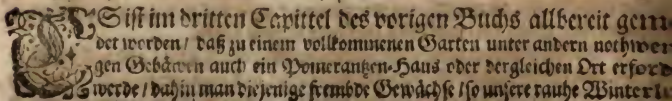 ES ist im dritten Capittel des vorigen Buchs allbereit gem
det worden / daß zu einem vollkommenen Garten unter andern nothwen
gen Gebäwen auch ein Pomerantzen-Haus oder dergleichen Ort erford
werde / dahin man diejenige frembde Gewächse / so unsere rauhe Winterl